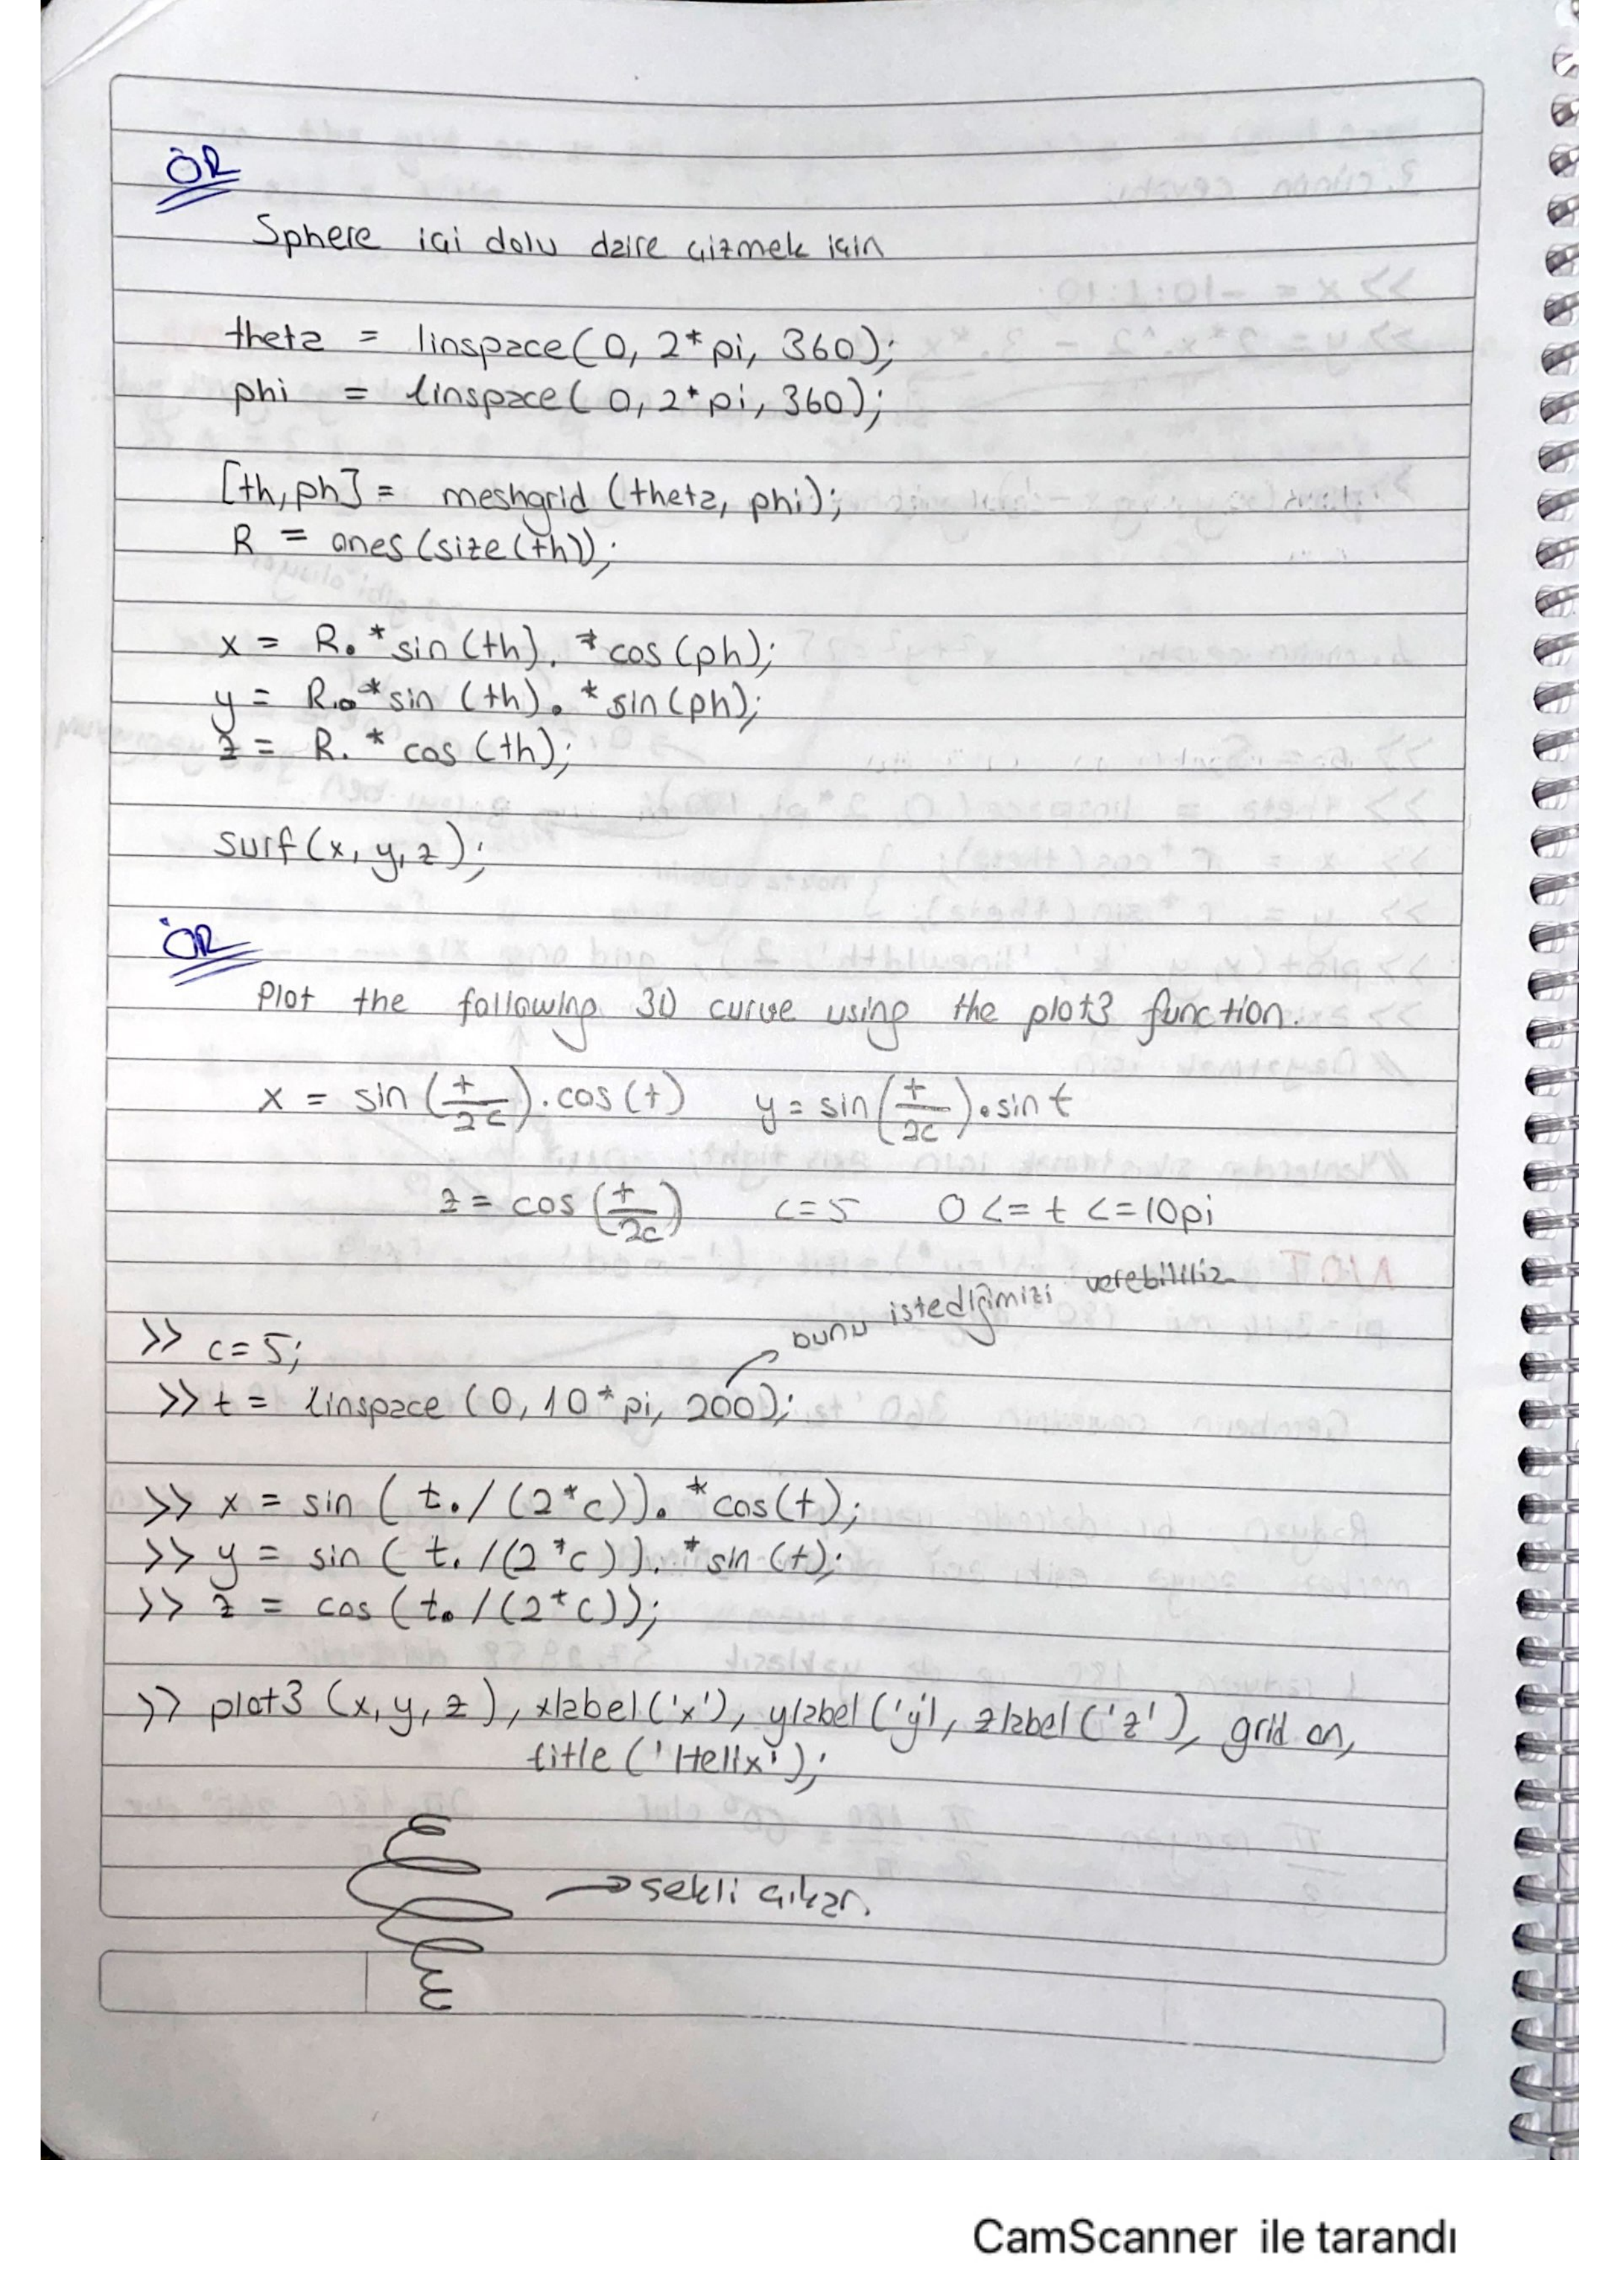 ÖR
Sphere içi dolu daire çizmek için
theta = linspace(0, 2*pi, 360);
phi = linspace(0, 2*pi, 360);
[th,ph] = meshgrid (theta, phi);
R = ones(size(th));
x = R.*sin(th).*cos(ph);
y = R.*sin(th).*sin(ph);
z = R.*cos(th);
surf(x,y,z);
ÖR
Plot the following 3D curve using the plot3 function.
x = sin(t/2c).cos(t) y = sin(t/2c).sin t
z = cos(t/2c) c=5 0<=t<=10pi
bunu istediğimizi verebiliriz
>> c=5;
>> t = linspace(0,10*pi,200);
>> x = sin(t./(2*c)).*cos(t);
>> y = sin(t./(2*c)).*sin(t);
>> z = cos(t./(2*c));
>> plot3(x,y,z), xlabel('x'), ylabel('y'), zlabel('z'), grid on,
title('Helix');
→ şekli çıkar.
CamScanner ile tarandı